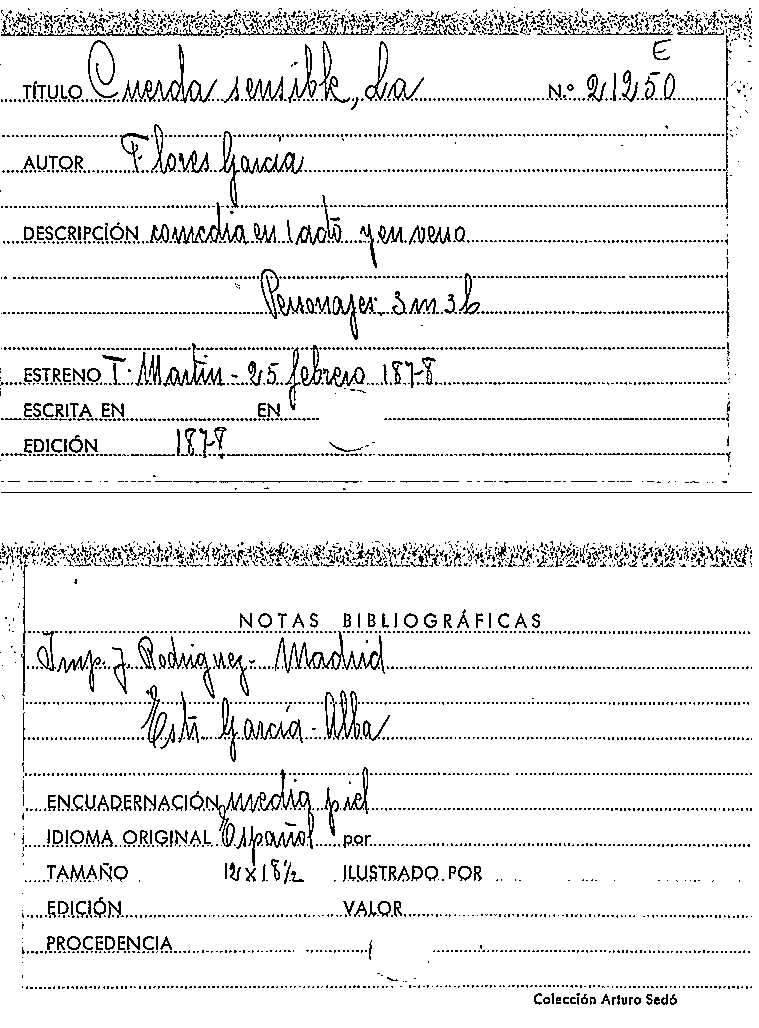 E
TÍTULO Cuerda sensible, La N.º 21250
AUTOR Flores García
DESCRIPCIÓN comedia en 1 acto y en verso
Personajes: 3m 3h
ESTRENO T. Martin - 25 febrero 1878
ESCRITA EN EN
EDICIÓN 1878
NOTAS BIBLIOGRÁFICAS
Imp. J. Rodriguez - Madrid
Estr. García - Alba
ENCUADERNACIÓN media piel
IDIOMA ORIGINAL Español por
TAMAÑO 12 x 18 1/2 ILUSTRADO POR
EDICIÓN VALOR
PROCEDENCIA
Colección Arturo Sedó